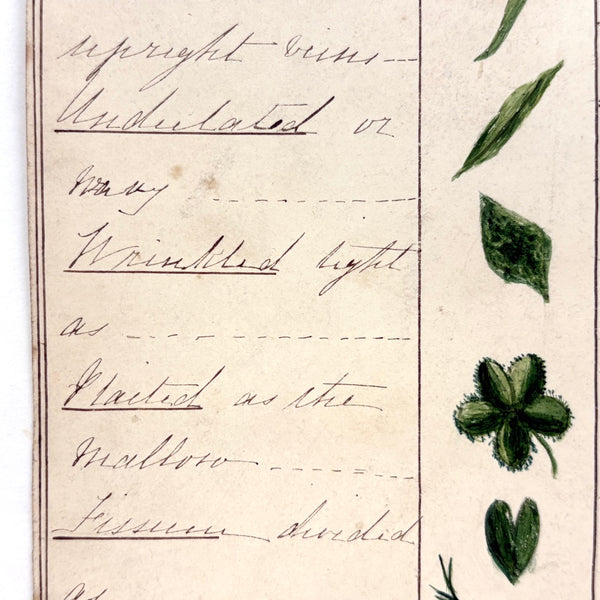 upright veins —
Undulated or
wavy - - - - - - - - - - -
Wrinkled tight
as - - - - - - - - - - - -
Plaited as the
Mallow - - - - - - -
Fissum divided
as